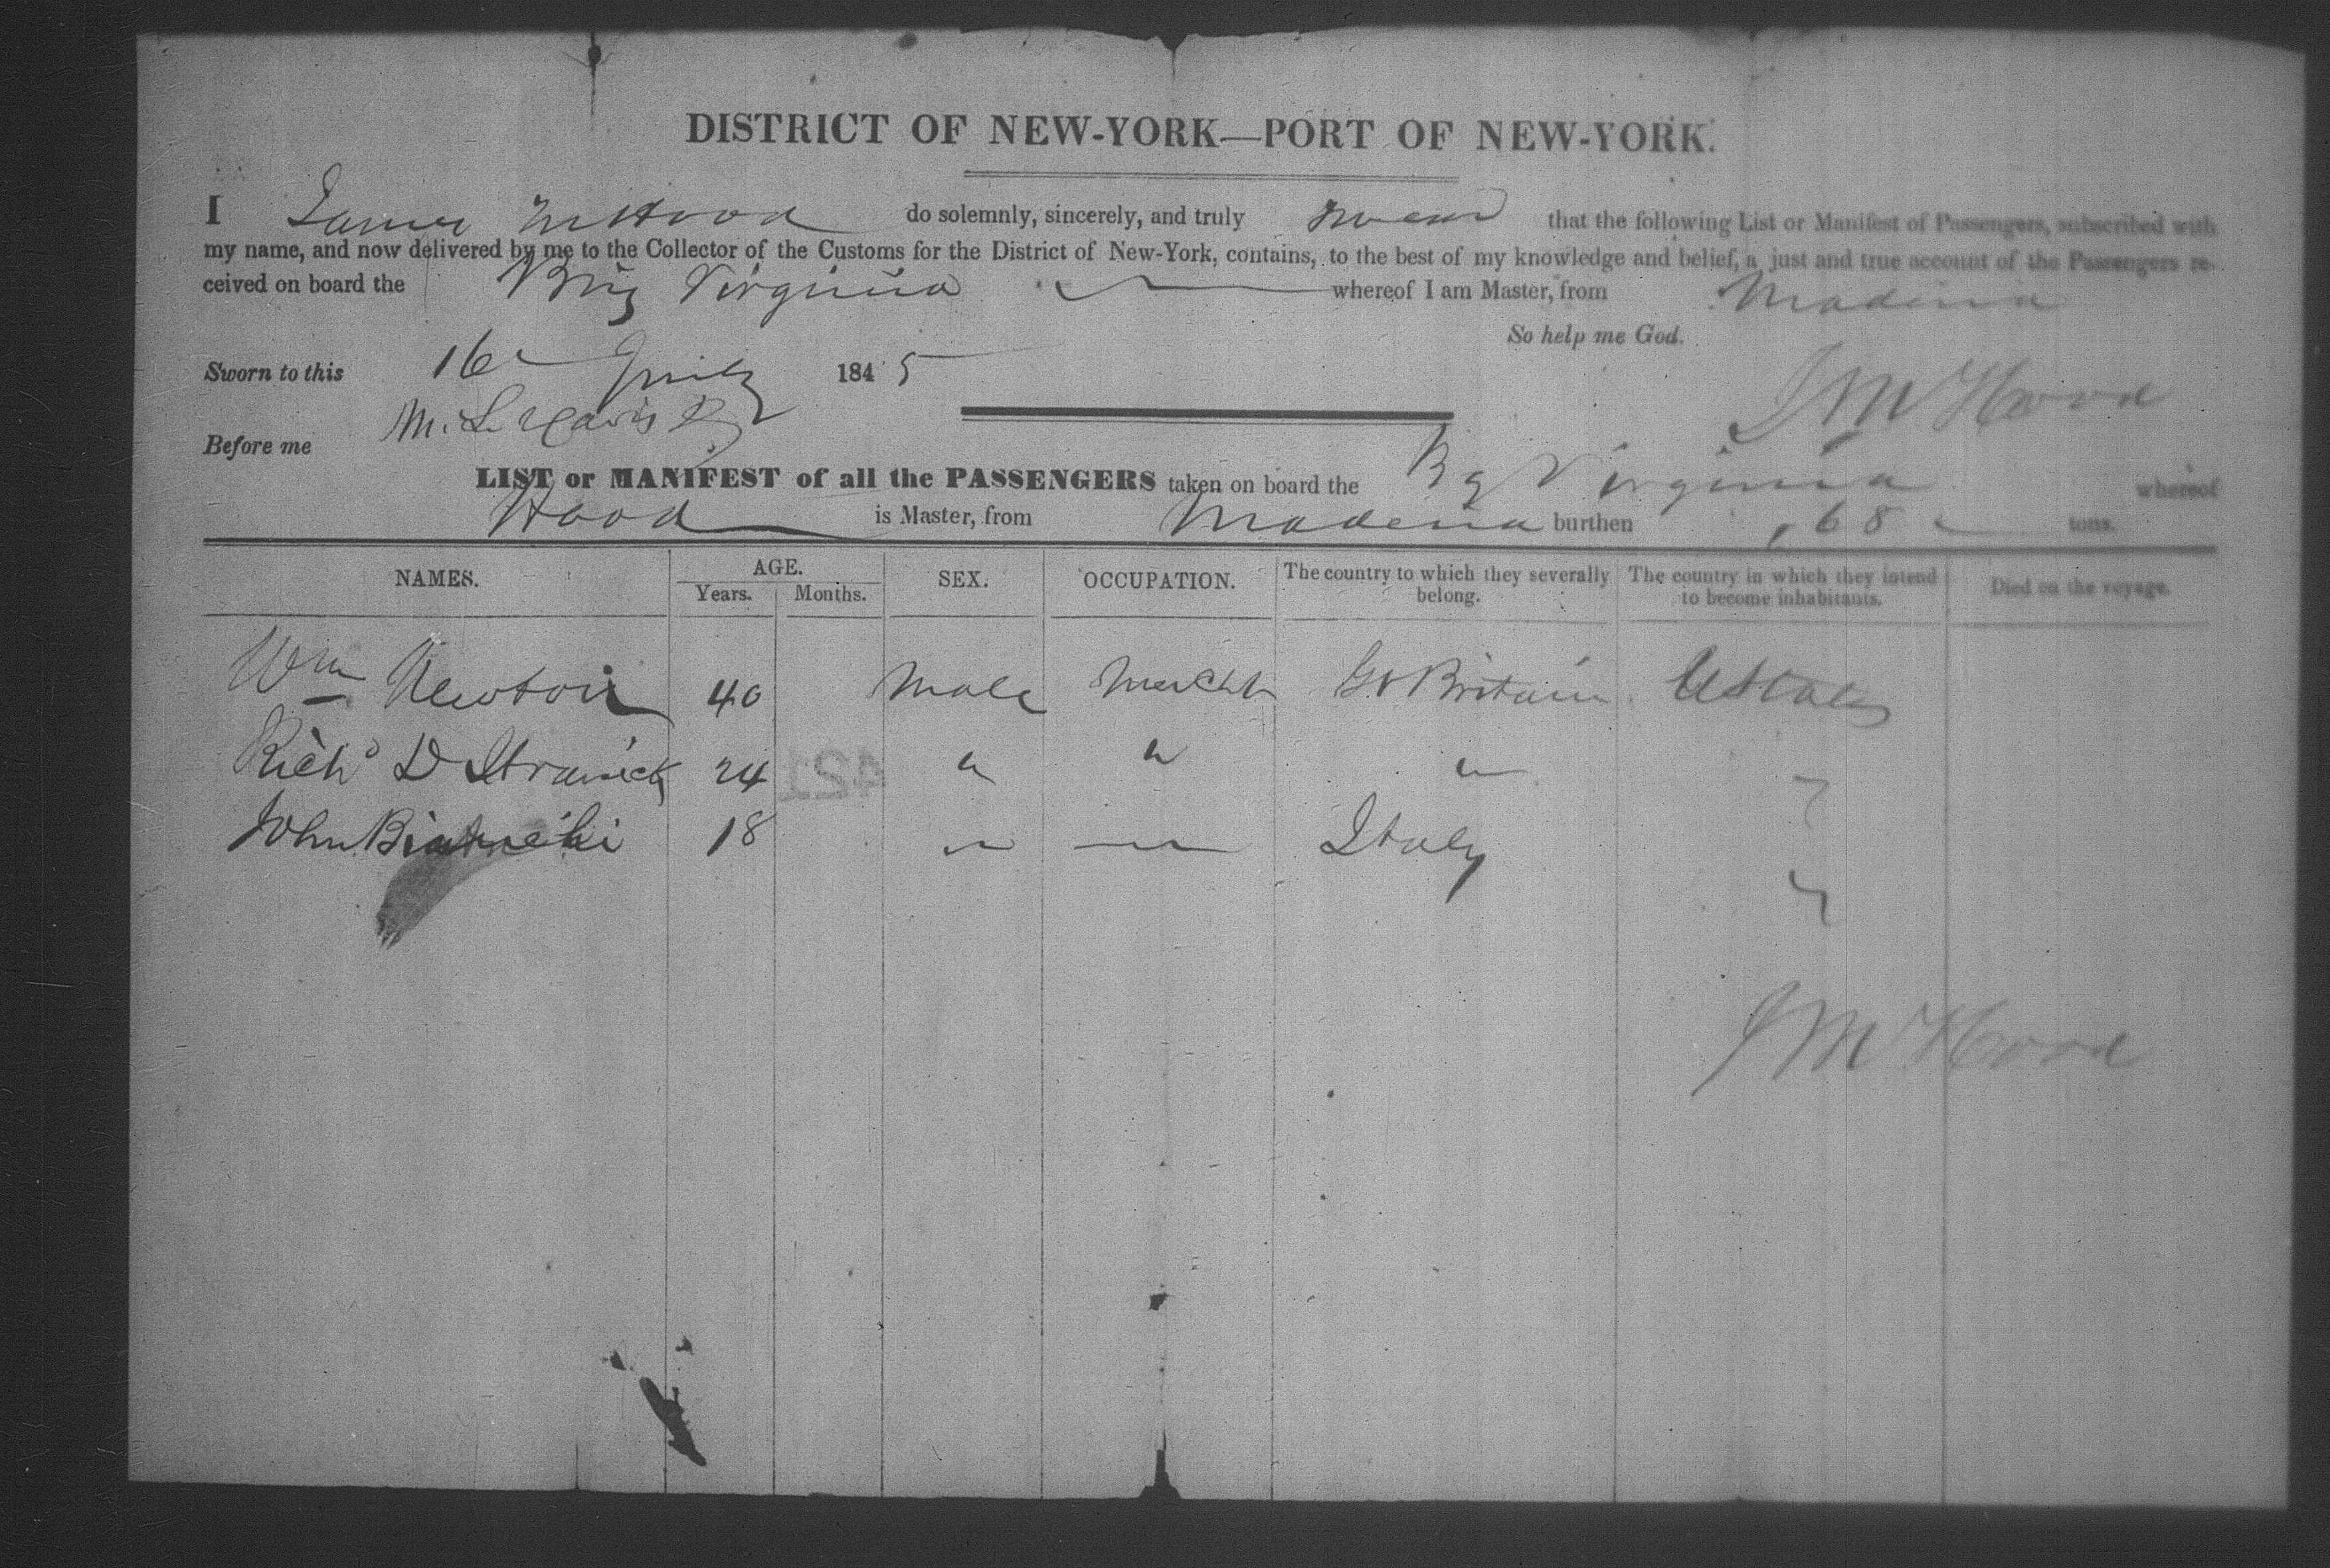 DISTRICT OF NEW-YORK—PORT OF NEW-YORK.
I James M Hood do solemnly, sincerely, and truly swear that the following List or Manifest of Passengers, subscribed with
my name, and now delivered by me to the Collector of the Customs for the District of New-York, contains, to the best of my knowledge and belief, a just and true account of the Passengers re-
ceived on board the Brig Virginia whereof I am Master, from Madeira
So help me God.
Sworn to this 16 July 1845
J M Hood
Before me M. L.
LIST or MANIFEST of all the PASSENGERS taken on board the Bg Virginia whereof
Hood is Master, from Madeira burthen 168 tons.
NAMES. AGE. SEX. OCCUPATION. The country to which they severally belong. The country in which they intend to become inhabitants. Died on the voyage.
Years. Months.
Wm Newton 40 Male Mercht Gt Britain UStates
Richd D 24 " " "
421
John Bianchi 18 " — Italy "
J M Hood